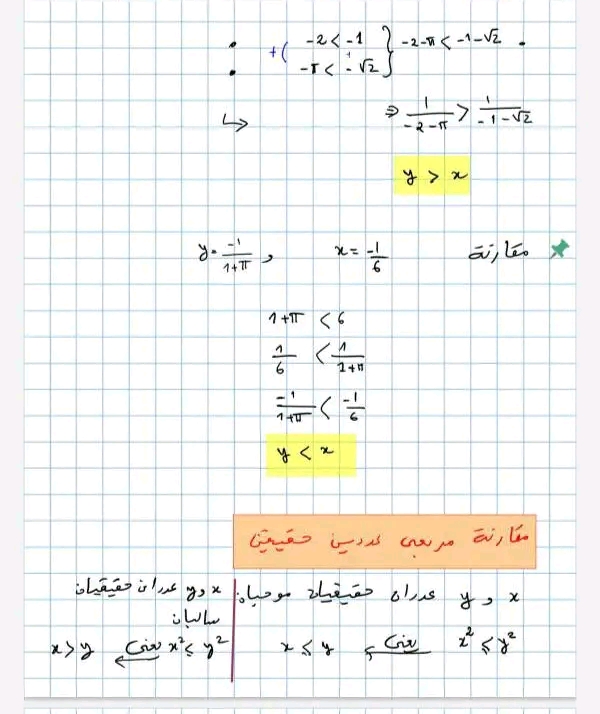 +( -2 < -1
-π < -√2 } -2-π < -1-√2
⇒ 1/(-2-π) > 1/(-1-√2)
y > x
مقارنة x = -1/6 و y = -1/(1+π)
1+π < 6
1/6 < 1/(1+π)
-1/(1+π) < -1/6
y < x
مقارنة مربعي عددين حقيقين
x و y عددان حقيقيان موجبان
x² ⩽ y² يعني x ⩽ y
x و y عددان حقيقيان
سالبان
x² ⩽ y² يعني x > y